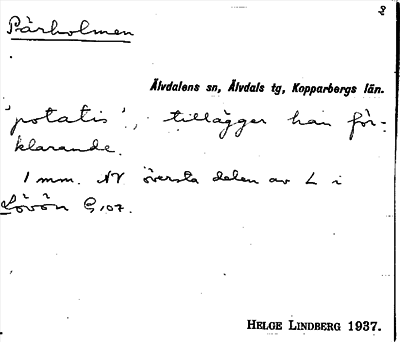 2
Pärholmen
Älvdalens sn, Älvdals tg, Kopparbergs län.
'potatis', tillägger han för-
klarande.
1 mm. NV översta delen av L i
Lövön G,07.
HELGE LINDBERG 1937.